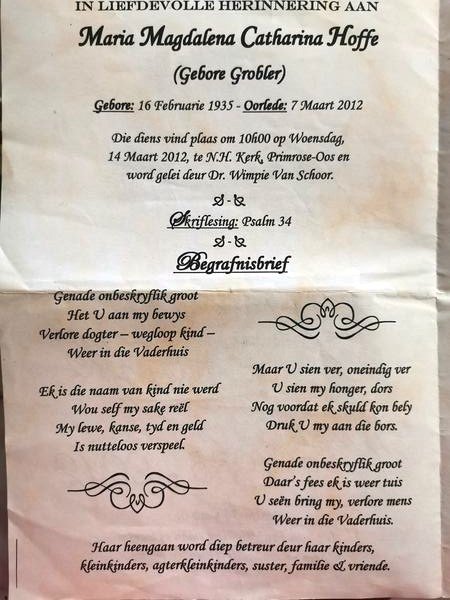 IN LIEFDEVOLLE HERINNERING AAN
Maria Magdalena Catharina Hoffe
(Gebore Grobler)
Gebore: 16 Februarie 1935 - Oorlede: 7 Maart 2012
Die diens vind plaas om 10h00 op Woensdag,
14 Maart 2012, te N.H. Kerk, Primrose-Oos en
word gelei deur Dr. Wimpie Van Schoor.
Skriflesing: Psalm 34
Begrafnisbrief
Genade onbeskryflik groot
Het U aan my bewys
Verlore dogter – wegloop kind –
Weer in die Vaderhuis
Ek is die naam van kind nie werd
Wou self my sake reël
My lewe, kanse, tyd en geld
Is nutteloos verspeel.
Maar U sien ver, oneindig ver
U sien my honger, dors
Nog voordat ek skuld kon bely
Druk U my aan die bors.
Genade onbeskryflik groot
Daar's fees ek is weer tuis
U seën bring my, verlore mens
Weer in die Vaderhuis.
Haar heengaan word diep betreur deur haar kinders,
kleinkinders, agterkleinkinders, suster, familie & vriende.